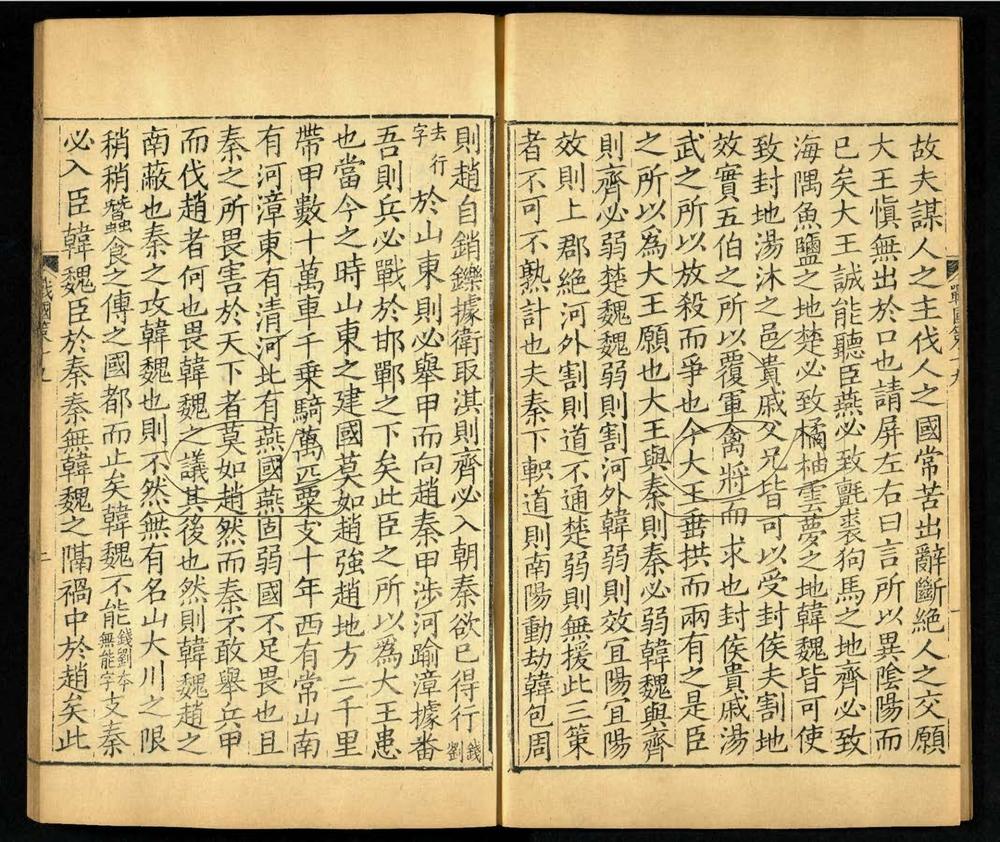 故夫謀人之主伐人之國常苦出辭斷絕人之交願
大王愼無出於口也請屏左右曰言所以異陰陽而
已矣大王誠能聽臣燕必致氈裘狗馬之地齊必致
海隅魚鹽之地楚必致橘柚雲夢之地韓魏皆可使
致封地湯沐之邑貴戚父兄皆可以受封侯夫割地
效實五伯之所以覆軍禽將而求也封侯貴戚湯
武之所以放殺而爭也今大王垂拱而兩有之是臣
之所以爲大王願也大王與秦則秦必弱韓魏與齊
則齊必弱楚魏魏弱則割河外韓弱則效宜陽宜陽
效則上郡絕河外割則道不通楚弱則無援此三策
者不可不熟計也夫秦下軹道則南陽動劫韓包周
則趙自銷鑠據衛取淇則齊必入朝秦欲已得行錢劉
去行字於山東則必舉甲而向趙秦甲涉河踰漳據番
吾則兵必戰於邯鄲之下矣此臣之所以爲大王患
也當今之時山東之建國莫如趙強趙地方二千里
帶甲數十萬車千乘騎萬匹粟支十年西有常山南
有河漳東有清河北有燕國燕固弱國不足畏也且
秦之所畏害於天下者莫如趙然而秦不敢舉兵甲
而伐趙者何也畏韓魏之議其後也然則韓魏趙之
南蔽也秦之攻韓魏也則不然無有名山大川之限
稍稍蠶食之傅之國都而止矣韓魏不能錢劉本無能字支秦
必入臣韓魏臣於秦秦無韓魏之隔禍中於趙矣此